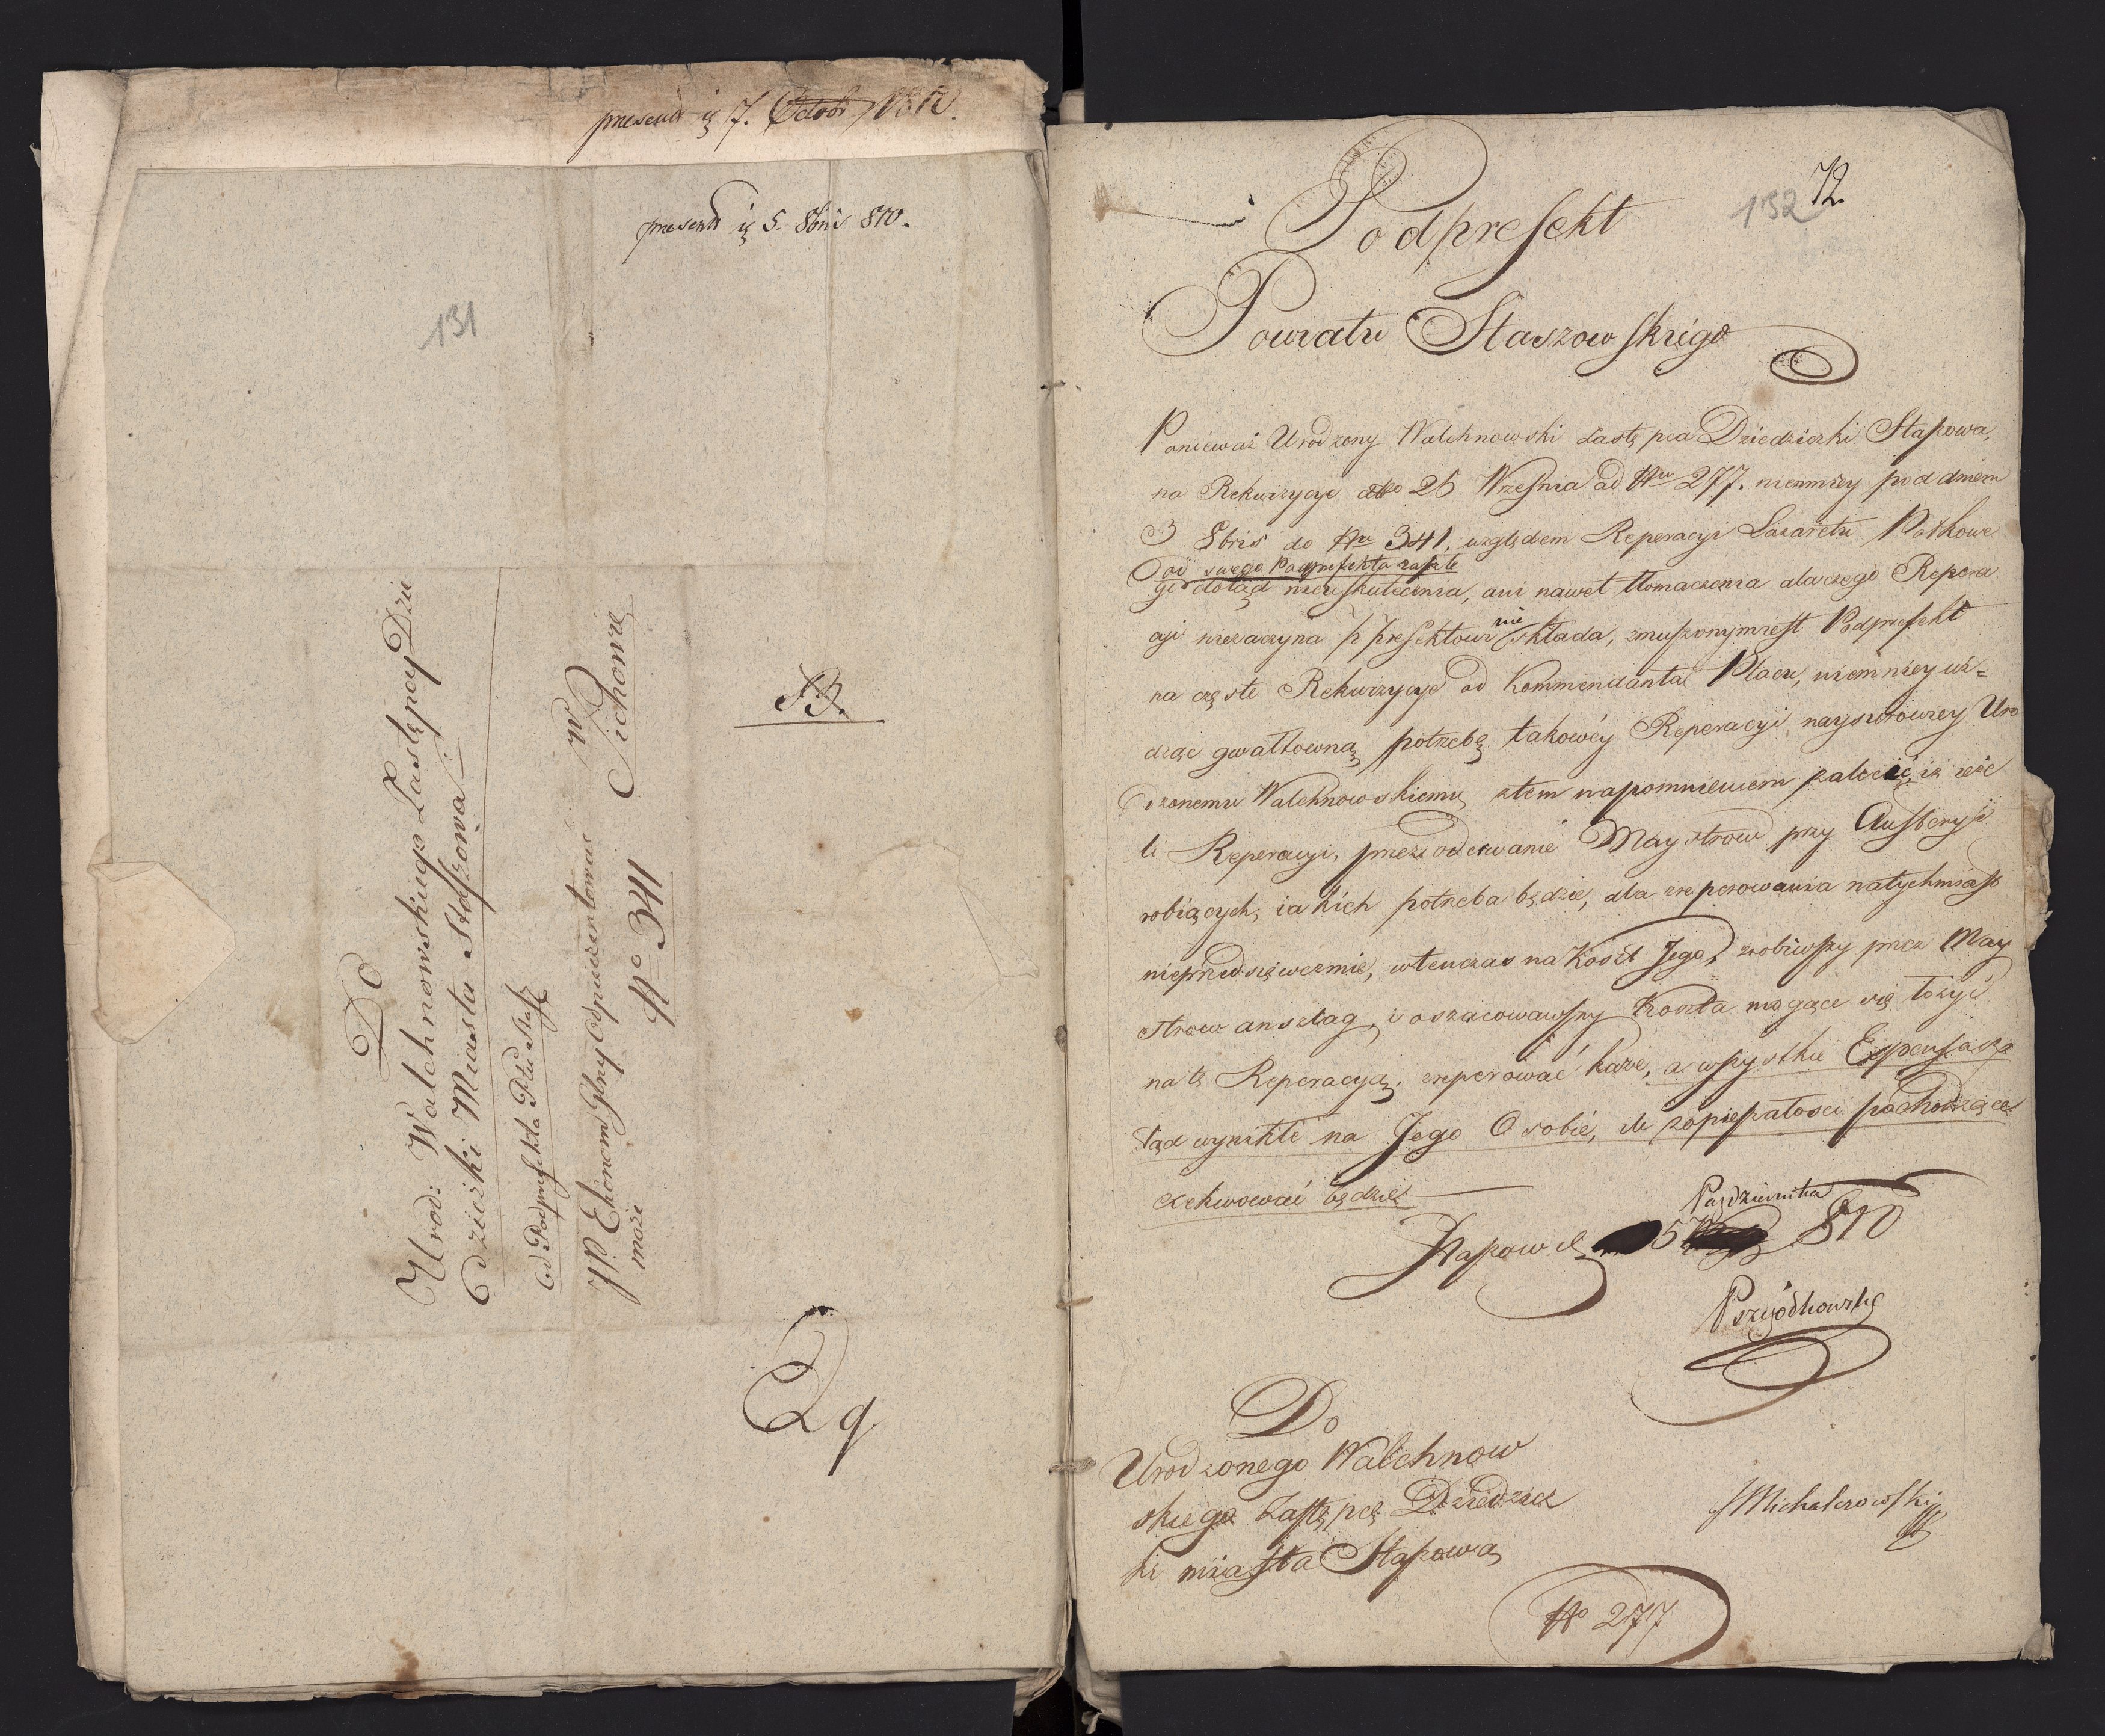 7. Octobr 1810.
5. 8bris 810.
131
Do
Urod: Walchnowskiego Zastępcy Dzie
dziczki Miasta Staszowa
Od Podprefekta Ptu Stasz
JP. Ekonom Glny odpieczentować w Cichoniě
może
No 341
SB.
72
132
Podprefekt
Powiatu Staszowskiego
Ponieważ Urodzony Walchnowski zastępca Dziedziczki Staszowa,
na Rekwizycye dtto 26 Września ad Nru 277. niemniey pod dniem
3 8bris do Nru 341. względem Reperacyi Lazaretu Połkowe
od swego Podprefekta zaszłe
go dotąd nieuskutecznia, ani nawet tłomaczenia dlaczego Repera
cyi niezaczyna Pprefektowi nie składa, zmuszonym iest Podprefekt
na częste Rekwizycye od Kommendanta Placu, niemniey wi-
dząc gwałtowną potrzebę takowéy Reperacyi, naysurowiey Uro
dzonemu Walchnowskiemu z tem napomnieniem zalecić, iż ieże
li Reperacyi, przez oderwanie Maystrow przy Austeryi
robiących, iakich potrzeba będzie, dla zreperowania natychmiast
nieprzedsięweźmie, wtenczas na Koszt Jego, zrobiwszy przez May
strow anszlag, i oszacowawszy Koszta mogące się łożyć
na tę Reperacyą, zreperować każe, a wszystkie Expensa z
tąd wynikłe na Jego Osobie, ile z opieszałości pochodzące
exekwować będzie
Staszow d 5 Października 810
Do
Urodzonego Walchnow
skiego Zastępcę Dziedzicz
ki miasta Staszowa
Michalczowski
No 277